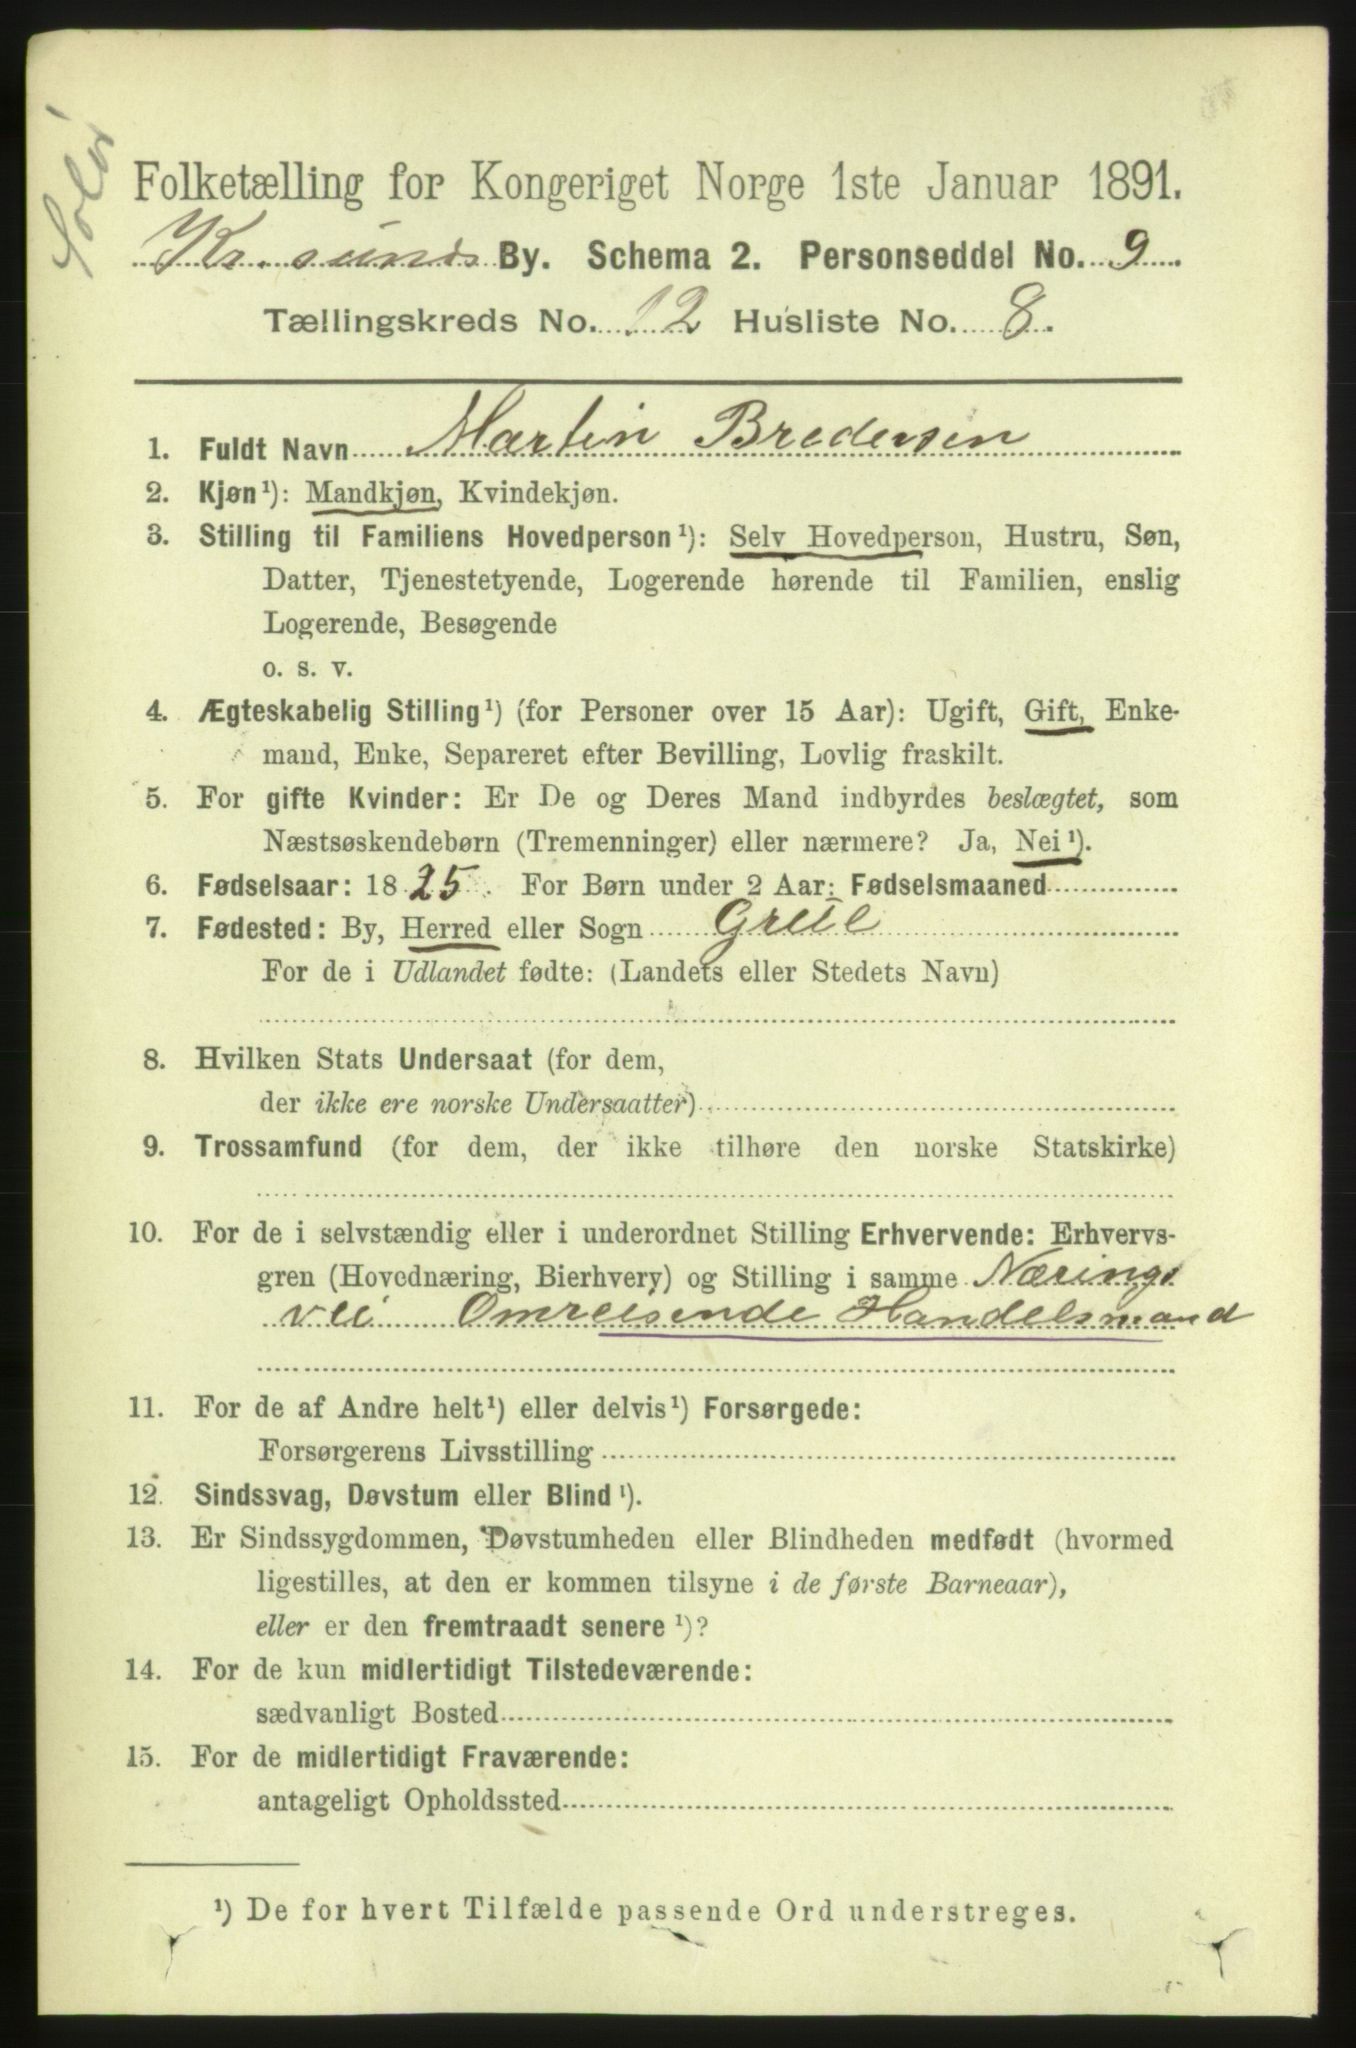 Solør
Folketælling for Kongeriget Norge 1ste Januar 1891.
Kr.sunds By. Schema 2. Personseddel No. 9.
Tællingskreds No. 12 Husliste No. 8.
1. Fuldt Navn Martin Bredersen
2. Kjøn¹): Mandkjøn, Kvindekjøn.
3. Stilling til Familiens Hovedperson¹): Selv Hovedperson, Hustru, Søn,
Datter, Tjenestetyende, Logerende hørende til Familien, enslig
Logerende, Besøgende
o. s. v.
4. Ægteskabelig Stilling¹) (for Personer over 15 Aar): Ugift, Gift, Enke-
mand, Enke, Separeret efter Bevilling, Lovlig fraskilt.
5. For gifte Kvinder: Er De og Deres Mand indbyrdes beslægtet, som
Næstsøskendebørn (Tremenninger) eller nærmere? Ja, Nei¹).
6. Fødselsaar: 1825. For Børn under 2 Aar: Fødselsmaaned
7. Fødested: By, Herred eller Sogn Grue
For de i Udlandet fødte: (Landets eller Stedets Navn)
8. Hvilken Stats Undersaat (for dem,
der ikke ere norske Undersaatter)
9. Trossamfund (for dem, der ikke tilhøre den norske Statskirke)
10. For de i selvstændig eller i underordnet Stilling Erhvervende: Erhvervs-
gren (Hovednæring, Bierhverv) og Stilling i samme Nærings
vei Omreisende Handelsmand
11. For de af Andre helt¹) eller delvis¹) Forsørgede:
Forsørgerens Livsstilling
12. Sindssvag, Døvstum eller Blind¹).
13. Er Sindssygdommen, Døvstumheden eller Blindheden medfødt (hvormed
ligestilles, at den er kommen tilsyne i de første Barneaar),
eller er den fremtraadt senere¹)?
14. For de kun midlertidigt Tilstedeværende:
sædvanligt Bosted
15. For de midlertidigt Fraværende:
antageligt Opholdssted
¹) De for hvert Tilfælde passende Ord understreges.